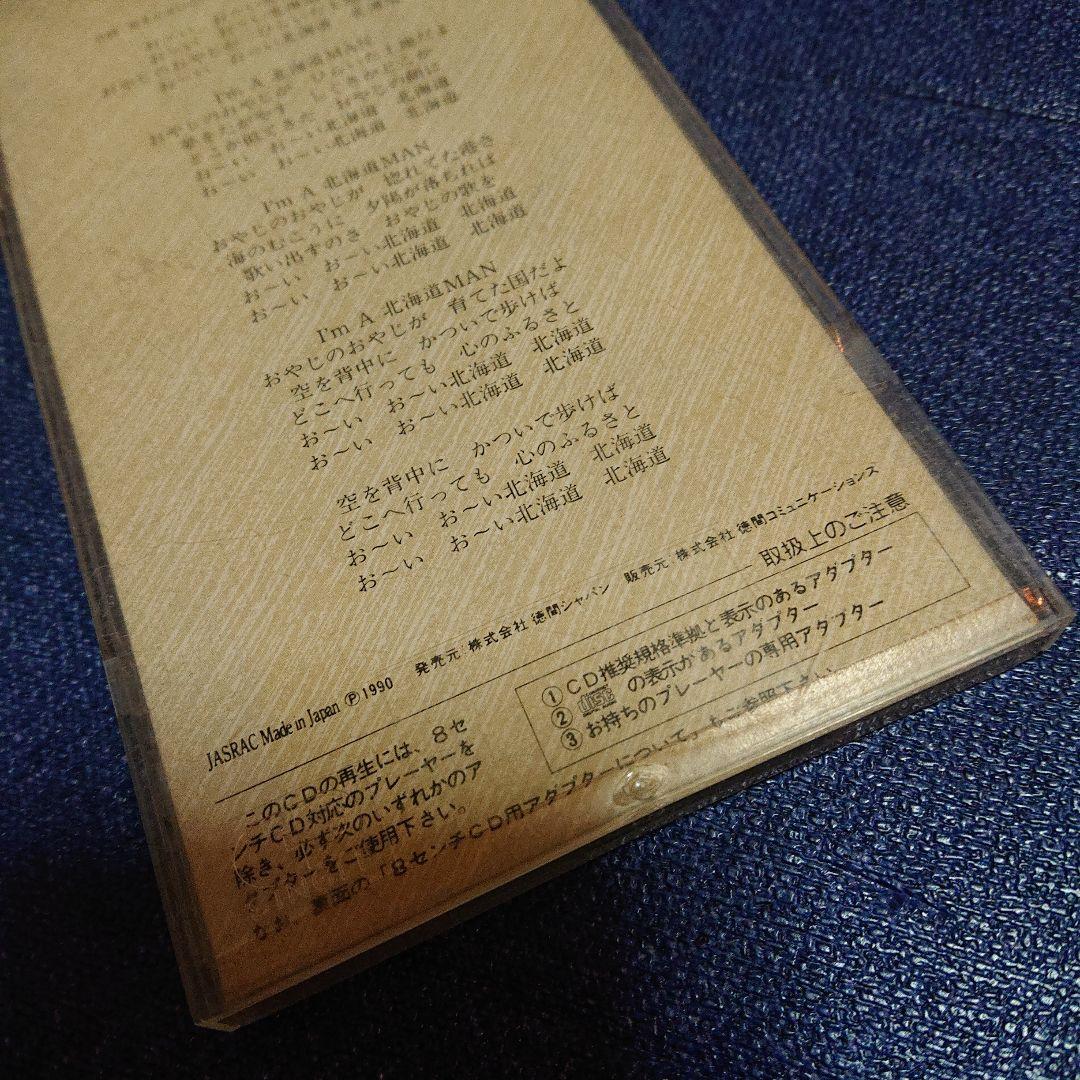 I'm A 北海道MAN
おやじのおやじが
お〜い お〜い北海道 北海道
お〜い お〜い北海道 北海道
I'm A 北海道MAN
おやじのおやじが 惚れてた港さ
海のむこうに 夕陽が落ちれば
歌い出すのさ おやじの歌を
お〜い お〜い北海道 北海道
お〜い お〜い北海道 北海道
I'm A 北海道MAN
おやじのおやじが 育てた国だよ
空を背中に かついで歩けば
どこへ行っても 心のふるさと
お〜い お〜い北海道 北海道
お〜い お〜い北海道 北海道
空を背中に かついで歩けば
どこへ行っても 心のふるさと
お〜い お〜い北海道 北海道
お〜い お〜い北海道 北海道
JASRAC Made in Japan Ⓟ1990 発売元 株式会社 徳間ジャパン 販売元 株式会社 徳間コミュニケーションズ
取扱上のご注意
このCDの再生には、8セ
ンチCD対応のプレーヤーを
除き、必ず次のいずれかのア
ダプターをご使用下さい。
①CD推奨規格準拠と表示のあるアダプター
② の表示があるアダプター
③お持ちのプレーヤーの専用アダプター
なお、裏面の「8センチCD用アダプターについて」もご参照下さい。